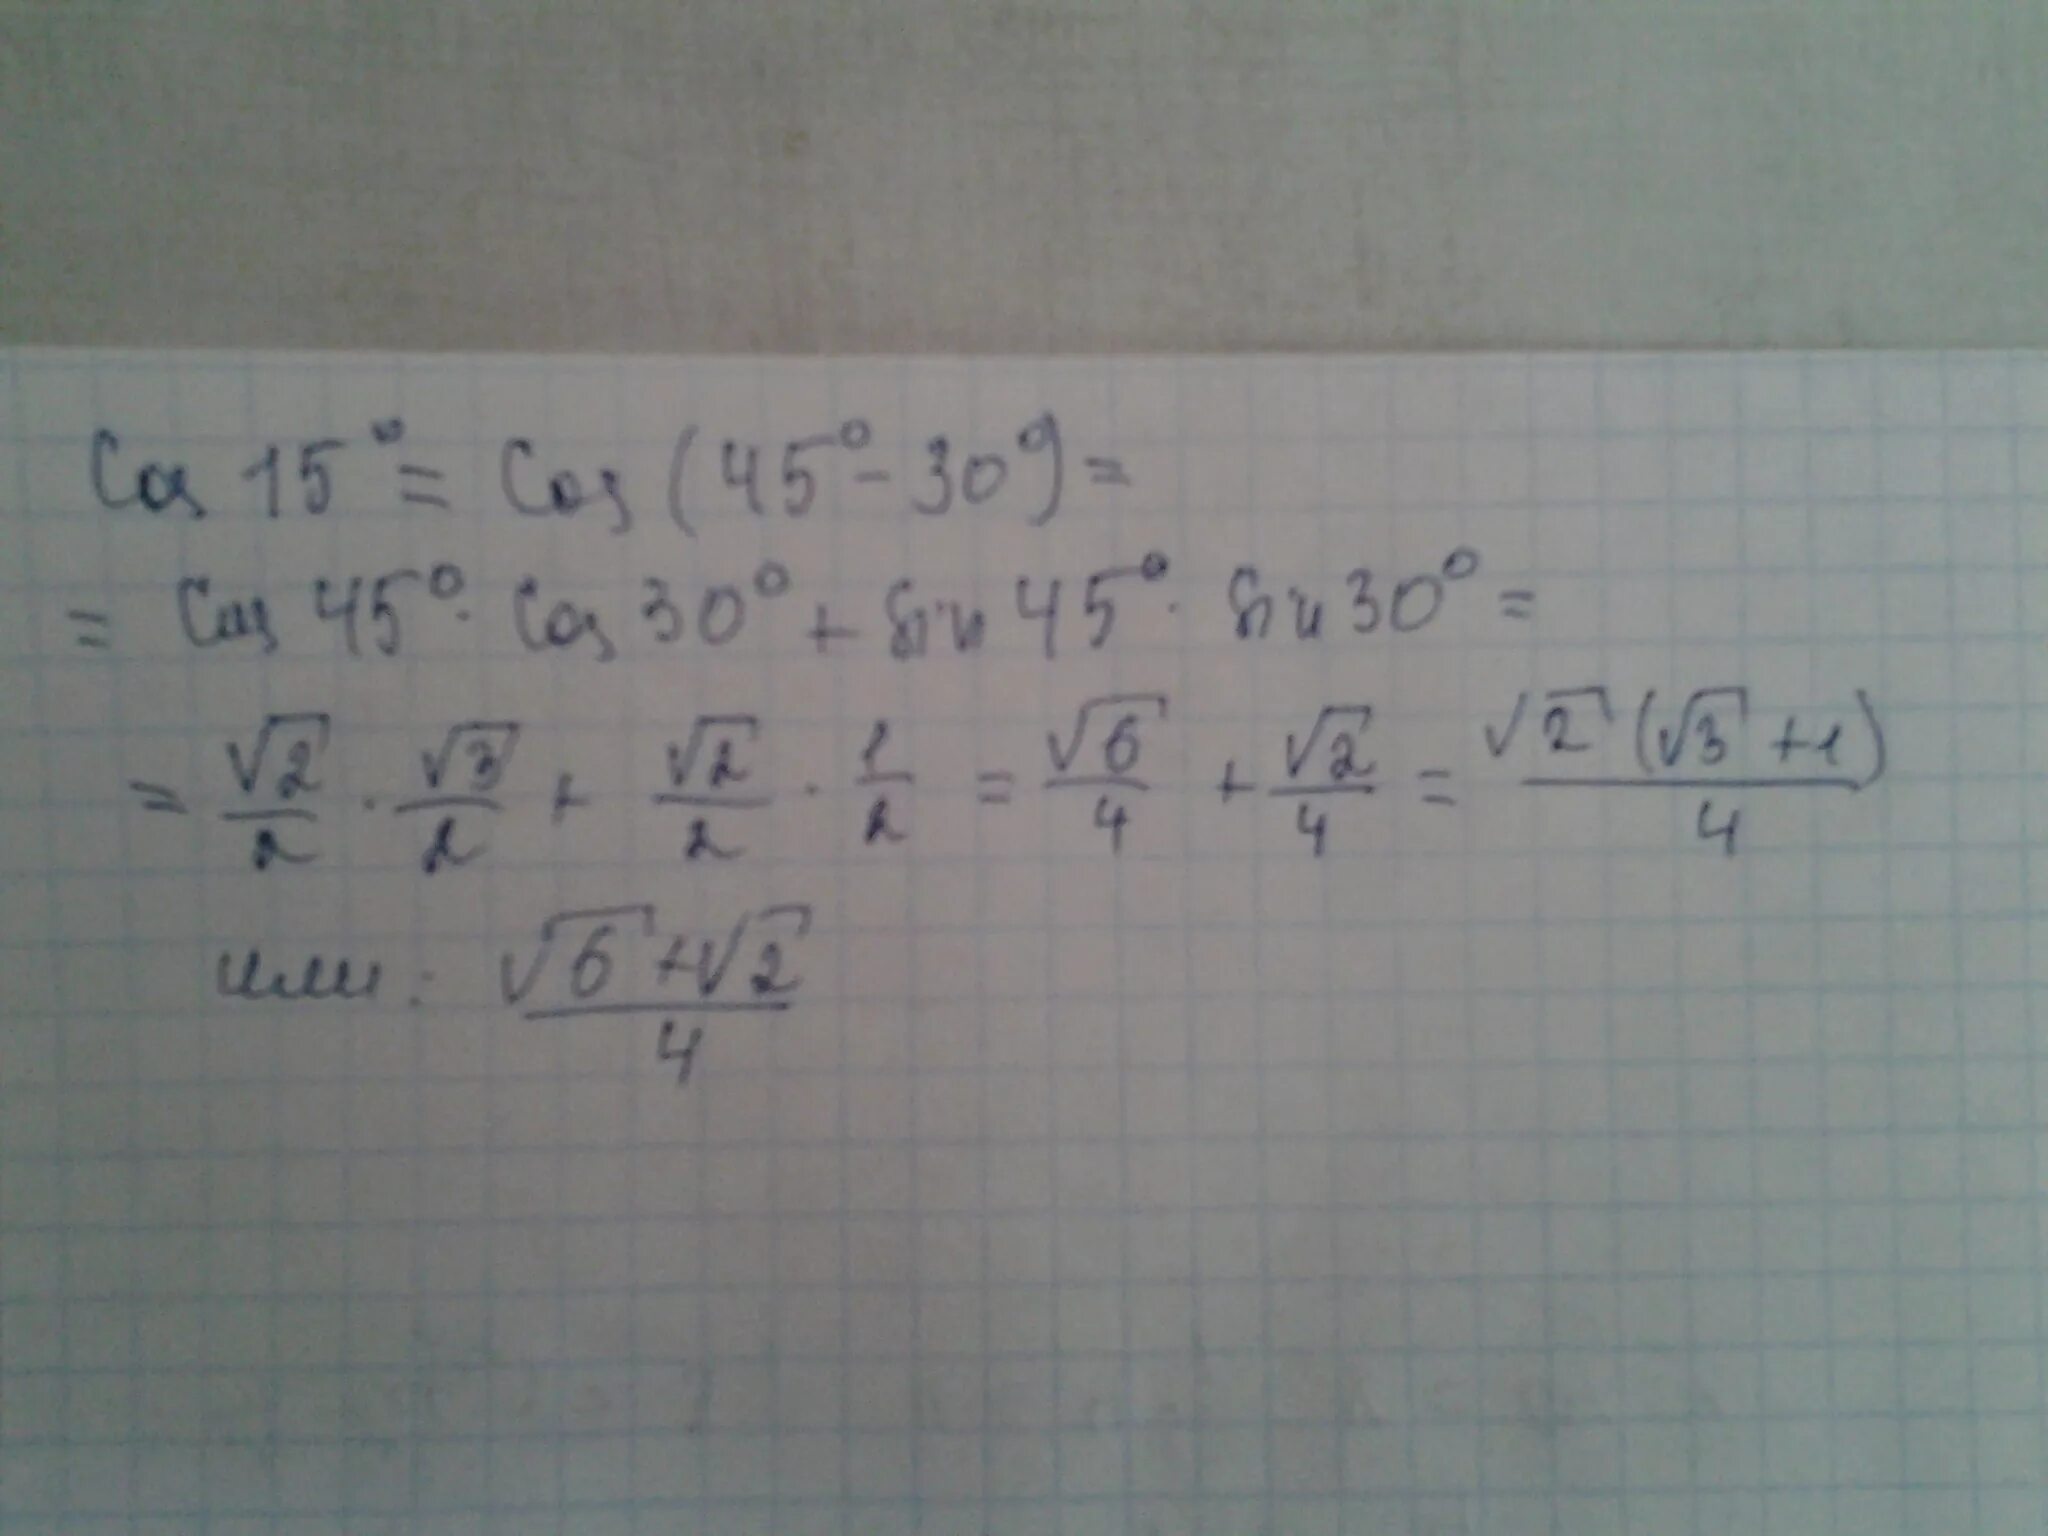 Cos 15° = Cos (45° - 30°) =
= Cos 45° · Cos 30° + sin 45° · sin 30° =
= √2/2 · √3/2 + √2/2 · 1/2 = √6/4 + √2/4 = √2(√3+1)/4
или: √6+√2/4